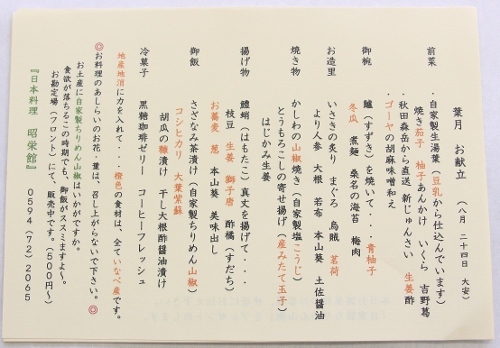 葉月 お献立 （八月 二十四日 大安）
前菜 ・自家製生湯葉（豆乳から仕込んでいます）
焼き茄子 柚子あんかけ いくら 吉野葛
・秋田森岳から直送 新じゅんさい 生姜酢
・ゴーヤの胡麻味噌和え
御椀 鱸（すずき）を焼いて・・・ 青柚子
冬瓜 煮麺 桑名の海苔 梅肉
お造里 いさきの炙り まぐろ 烏賊 茗荷
より人参 大根 若布 本山葵 土佐醤油
焼き物 かしわの山椒焼き（自家製塩こうじ）
とうもろこしの寄せ揚げ（産みたて玉子）
はじかみ生姜
揚げ物 鱧蛸（はもたこ）真丈を揚げて・・・
枝豆 生姜 獅子唐 酢橘（すだち）
お蕎麦 葱 本山葵 美味出し
御飯 さざなみ茶漬け（自家製ちりめん山椒）
コシヒカリ 大葉紫蘇
胡瓜の糠漬け 干し大根酢醤油漬け
冷菓子 黒糖珈琲ゼリー コーヒーフレッシュ
地産地消に力を入れて・・・橙色の食材は、全ていなべ産です。
◎お料理のあしらいのお花・葉は、召し上がらないで下さい。◎
お土産に自家製ちりめん山椒はいかがですか。
食欲が落ちるこの時期でも、御飯がススミますよ〜。
お勘定場（フロント）にて、販売中です。（５００円〜）
『日本料理 昭栄館』 ０５９４（７２）２０６５